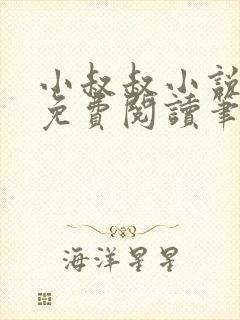 小叔叔小說
免費閱讀筆
海洋星星